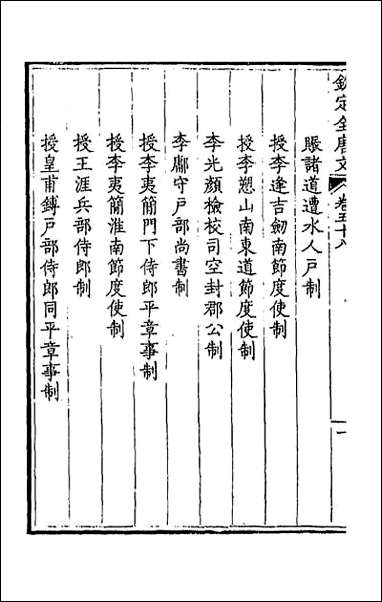 欽定全唐文
卷五十八
一
賑諸道遭水人戶制
授李逢吉劒南節度使制
授李愬山南東道節度使制
李光顏檢校司空封郡公制
李鄘守戶部尚書制
授李夷簡門下侍郎平章事制
授李夷簡淮南節度使制
授王涯兵部侍郎制
授皇甫鎛戶部侍郎同平章事制